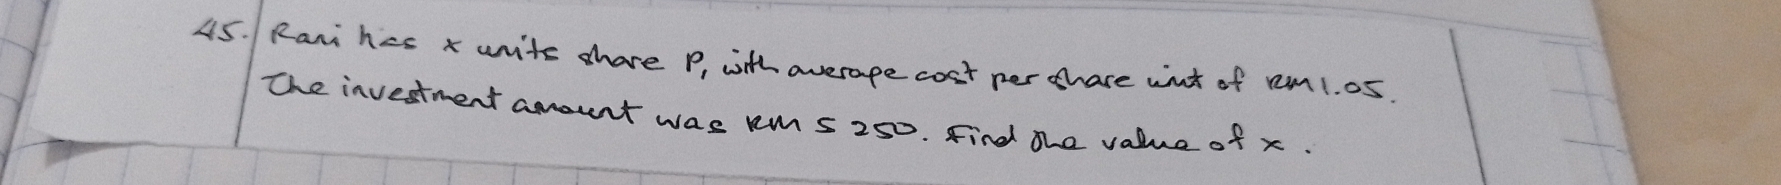 45. Rani has x units share P, with average cost per share unit of RM1.05.
The investment amount was RM 5 250. Find the value of x.